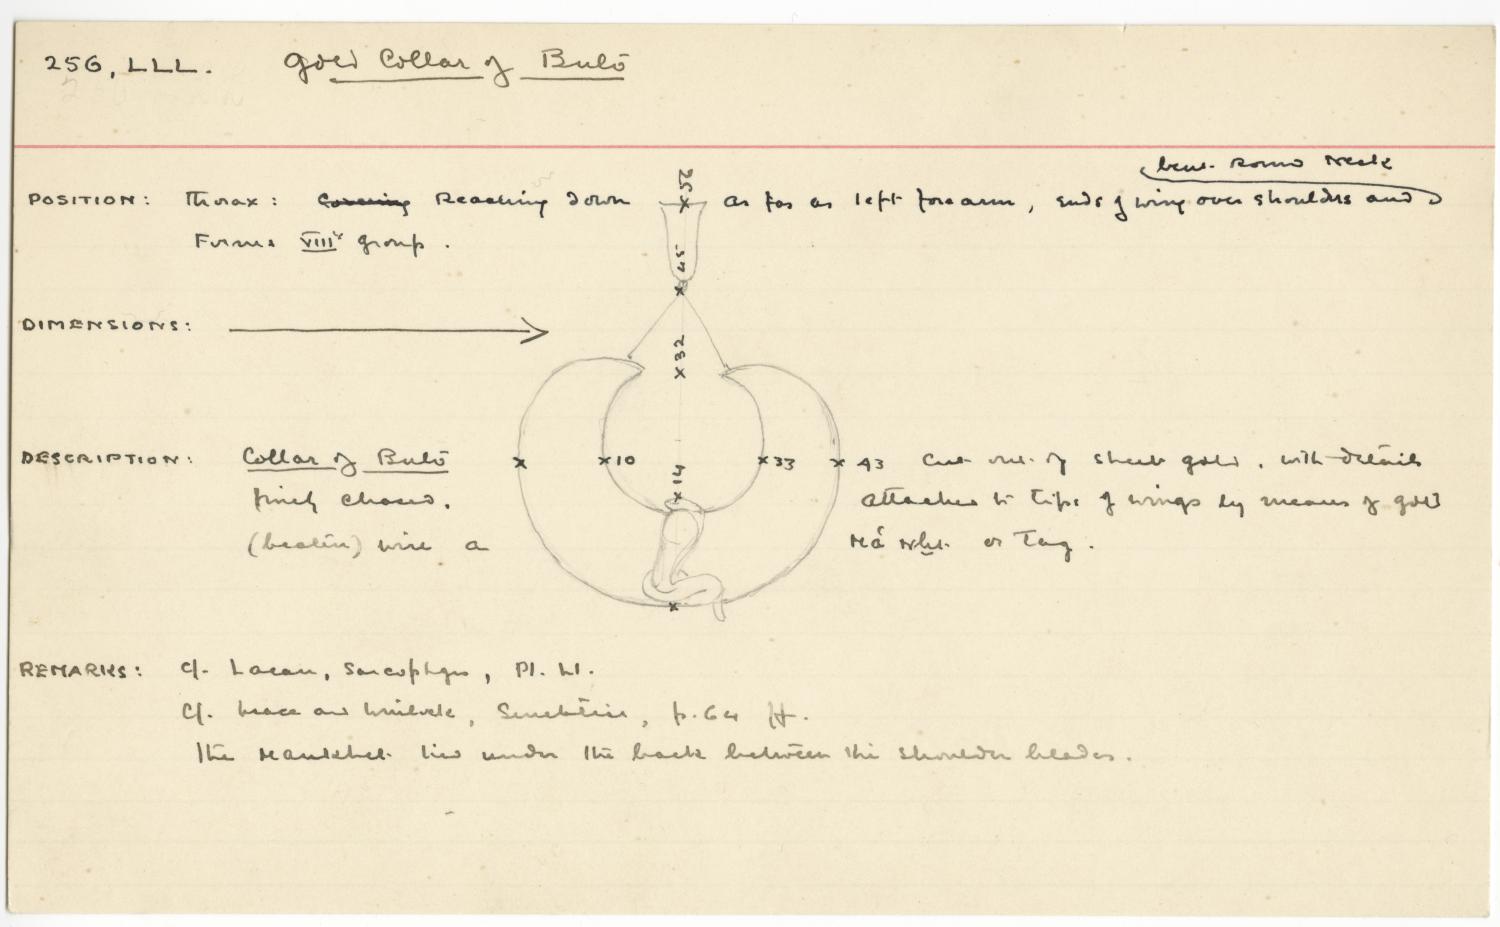 256, LLL. Gold Collar of Butō
POSITION: Thorax: Covering Reaching down as far as left forearm, ends of wing over shoulders and
bent round neck
Forms VIIIth group.
DIMENSIONS:
56
45
32
10
14
33
43
DESCRIPTION: Collar of Butō Cut out of sheet gold, with details
finely chased. attached to tips of wings by means of gold
(beaten) wire a or Tag.
REMARKS: Cf. Lacau, Sarcophages, Pl. LI.
Cf. Mace and Winlock, Senebtisi, p. 64 ff.
The Mankhet lies under the back between the shoulder blades.